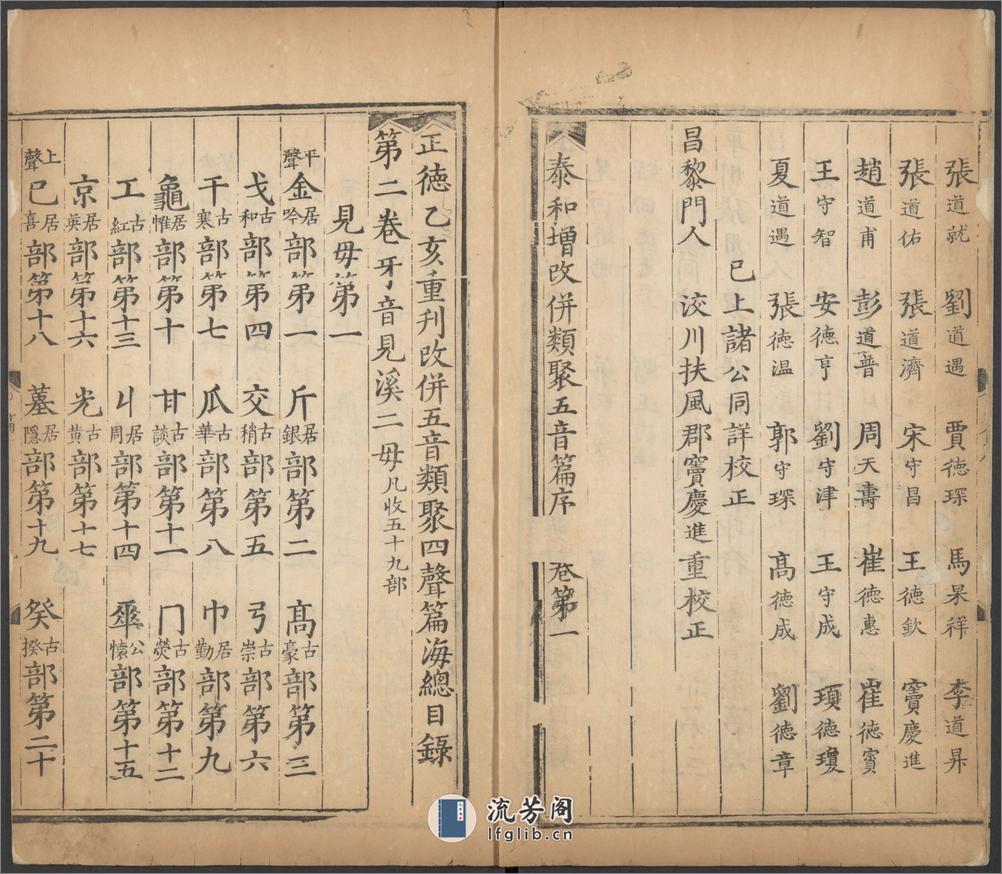 張道就 劉道遇 賈德琛 馬杲祥 李道昇
張道佑 張道濟 宋守昌 王德欽 竇慶進
趙道甫 彭道普 周天壽 崔德惠 崔德賓
王守智 安德亨 劉守津 王守成 頊德瓊
夏道遇 張德温 郭守琛 髙德成 劉德章
已上諸公同詳校正
昌黎門人 洨川扶風郡竇慶進重校正
泰和增改併類聚五音篇序 卷第一
正德乙亥重刊改併五音類聚四聲篇海總目錄
第二卷牙音見溪二毋凡收五十九部
見毋第一
平聲金居吟部第一 斤居銀部第二 髙古豪部第三
戈古和部第四 交古稍部第五 弓古崇部第六
干古寒部第七 瓜古華部第八 巾居勤部第九
龜居惟部第十 甘古談部第十一 冂古熒部第十二
工古紅部第十三 丩居周部第十四 𠦬公懷部第十五
京居英部第十六 光古黄部第十七
上聲己居喜部第十八 居隱部第十九 癸古揆部第二十
流芳阁
lfglib.cn